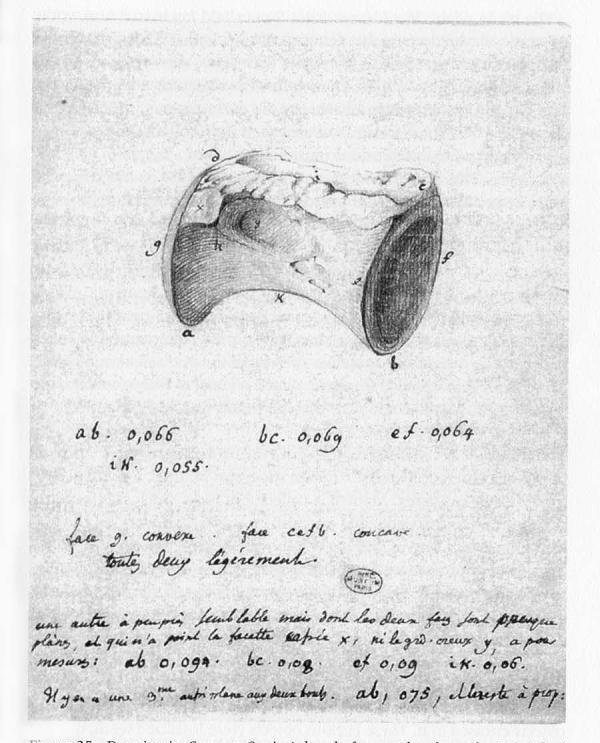 d i c
x y
g h f
e
k
a
b
ab. 0,066 bc. 0,069 ef. 0,064
ik. 0,055.
face g. convexe. face cefb. concave
toutes deux légérement.
une autre à peuprès semblable mais dont les deux faces sont presque
planes, et qui n'a point la facette x, ni le grd. creux y, a pour
mesures: ab 0,094. bc. 0,08. ef 0,09 ik. 0,06.
Il y en a une 3me. aux deux bouts. ab, 075, et le reste à prop: